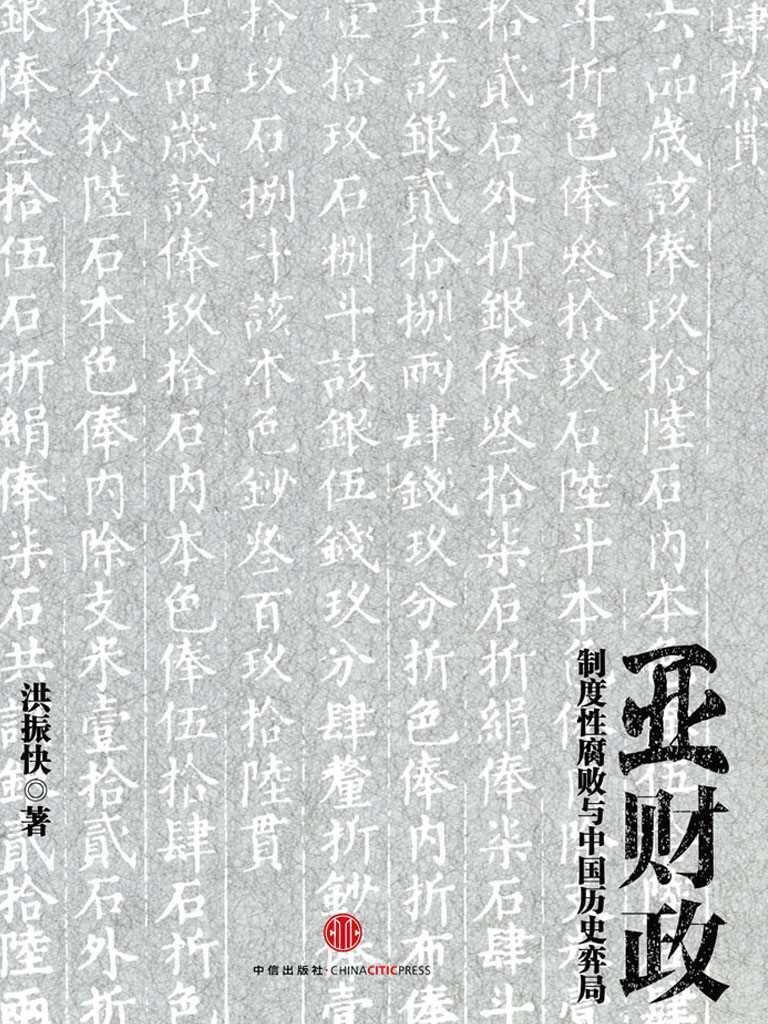 肆拾貫
六品歲該俸玖拾陸石内本
斗折色俸叄拾玖石陸斗本
拾貳石外折銀俸叄拾柒石折絹俸柒石肆斗
共該銀貳拾捌兩肆錢玖分折色俸内折布俸
壹拾玖石捌斗該銀伍錢玖分肆釐折鈔俸壹
拾玖石捌斗該本色鈔叄百玖拾陸貫
七品歲該俸玖拾石内本色俸伍拾肆石折色
俸叄拾陸石本色俸内除支米壹拾貳石外折
銀俸叄拾伍石折絹俸柒石共該銀貳拾陸兩
亚财政
制度性腐败与中国历史弈局
洪振快◎著
中信出版社·CHINACITICPRESS